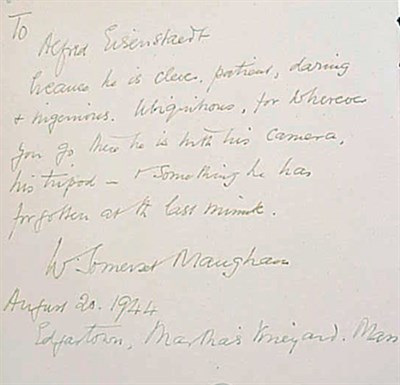 To
Alfred Eisenstaedt
because he is clever, patient, daring
& ingenious. Ubiquitous, for wherever
you go there he is with his camera,
his tripod – & something he has
forgotten at the last minute.
W. Somerset Maugham
August 20. 1944
Edgartown, Martha's Vineyard. Mass